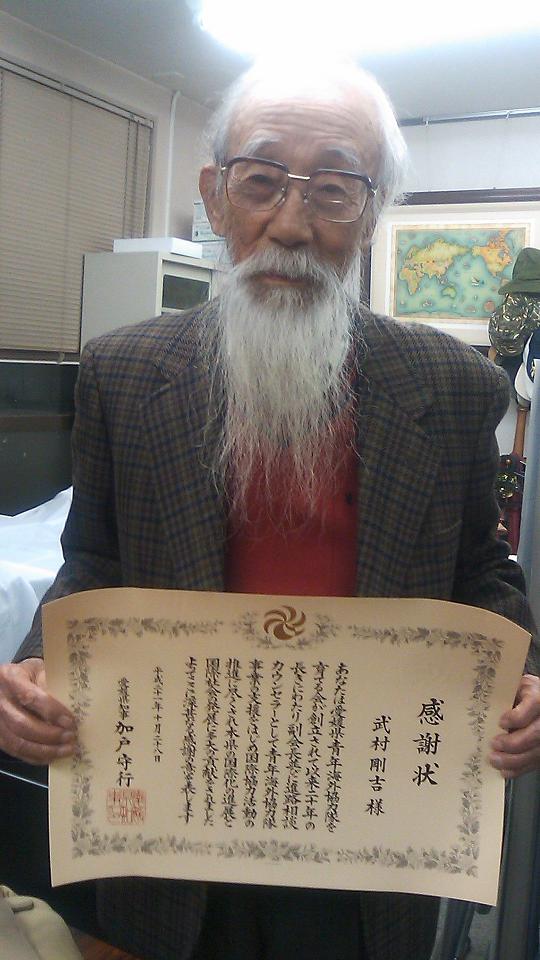 感謝状
武村剛吉様
あなたは愛媛県青年海外協力隊を
育てる会が創立されて以来二十年の
長きにわたり副会長並びに進路相談
カウンセラーとして青年海外協力隊
事業の支援をはじめ国際協力活動の
推進に尽くされ本県の国際化の進展と
国際社会発展に多大な貢献をされました
よってここに深甚なる感謝の意を表します
平成二十一年十月二十八日
愛媛県知事 加戸守行